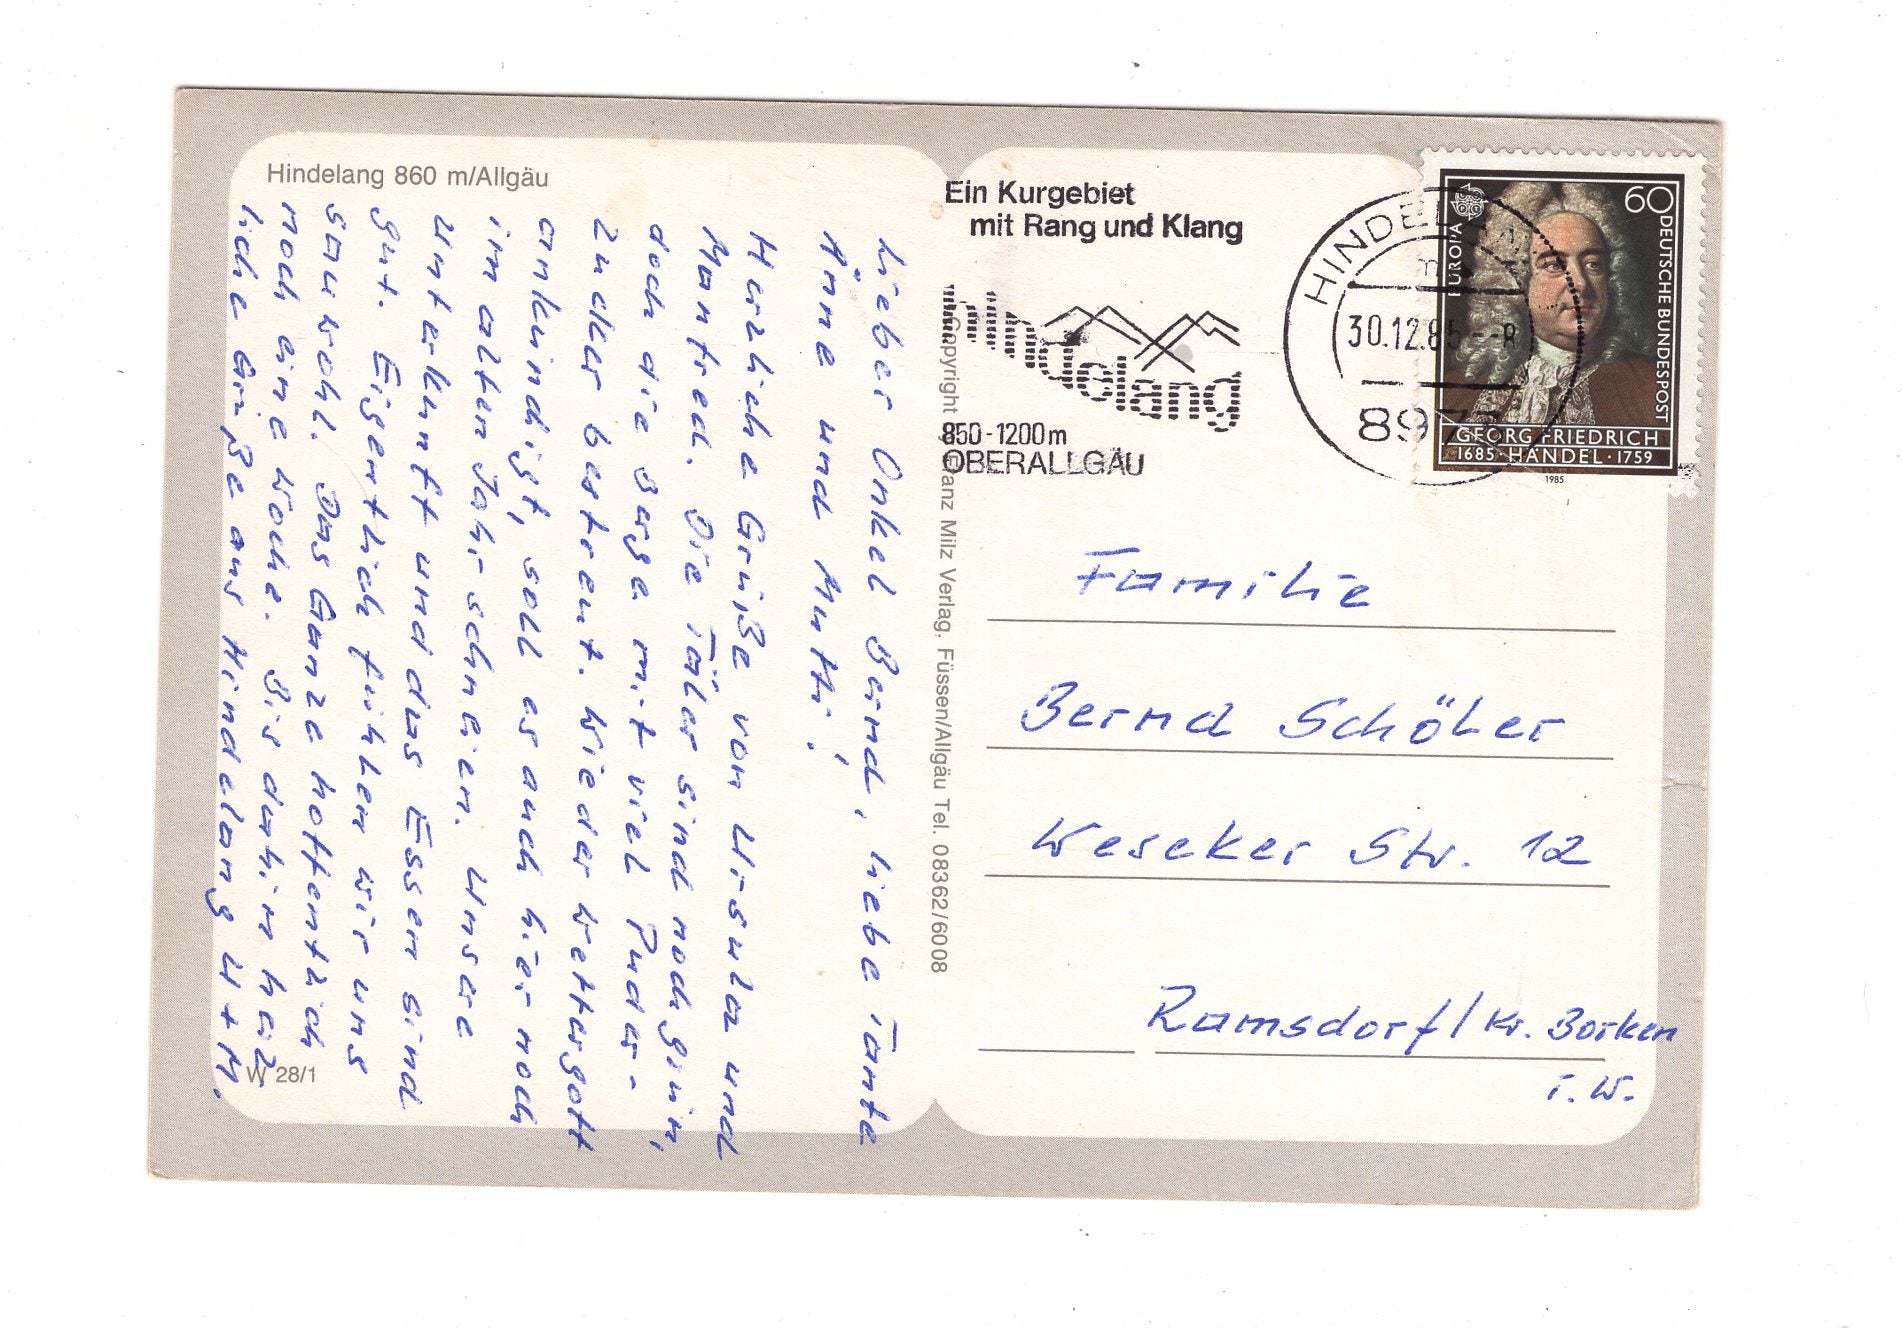 Hindelang 860 m/Allgäu
Lieber Onkel Bernd, liebe Tante
Änne und Mutti!
Herzliche Grüße von Ursula und
Manfred. Die Täler sind noch grün,
doch die Berge mit viel Puder-
zucker bestreut. Wieder Wettergott
ankündigt, soll es auch hier noch
im alten Jahr schneien. Unsere
Unterkunft und das Essen sind
gut. Eigentlich fühlen wir uns
sauwohl. Das Ganze hoffentlich
noch eine Woche. Bis dahin herz-
liche Grüße aus Hindelang U+M.
W 28/1
Copyright Franz Milz Verlag, Füssen/Allgäu Tel. 08362/6008
Ein Kurgebiet
mit Rang und Klang
hindelang
850-1200m
OBERALLGÄU
HINDELANG
30.12.85--8
8973
EUROPA
60
DEUTSCHE BUNDESPOST
GEORG FRIEDRICH
1685·HÄNDEL·1759
1985
Familie
Bernd Schöler
Weseker Str. 12
Ramsdorf/Kr. Borken
i.W.